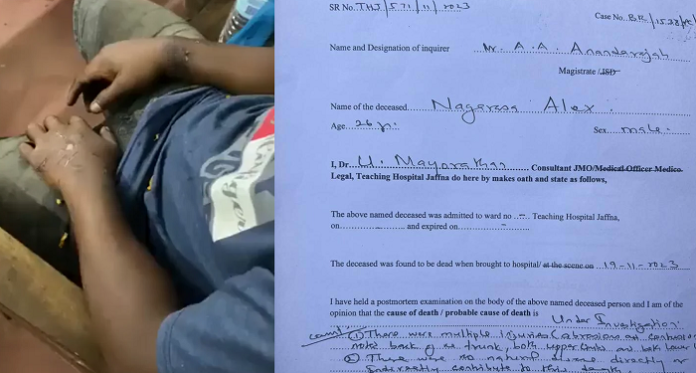 SR No. THJ/571/11/2023
Case No. B.R/1528/
Name and Designation of inquirer Mr. A. A. Anandarajah
Magistrate /JSD
Name of the deceased Nagarasa Alex.
Age 26 yr. Sex male.
I, Dr. U. Mayorathan Consultant JMO/Medical Officer Medico-
Legal, Teaching Hospital Jaffna do here by makes oath and state as follows,
The above named deceased was admitted to ward no ..-.. Teaching Hospital Jaffna,
on.................... and expired on.......-.......
The deceased was found to be dead when brought to hospital/ at the scene on 19-11-2023
I have held a postmortem examination on the body of the above named deceased person and I am of the
opinion that the cause of death / probable cause of death is Under Investigation
① There were multiple injuries (abrasions and contusions
noted back of the trunk, both upper limbs and both lower
② There were no natural disease directly or
indirectly contribute to this death.